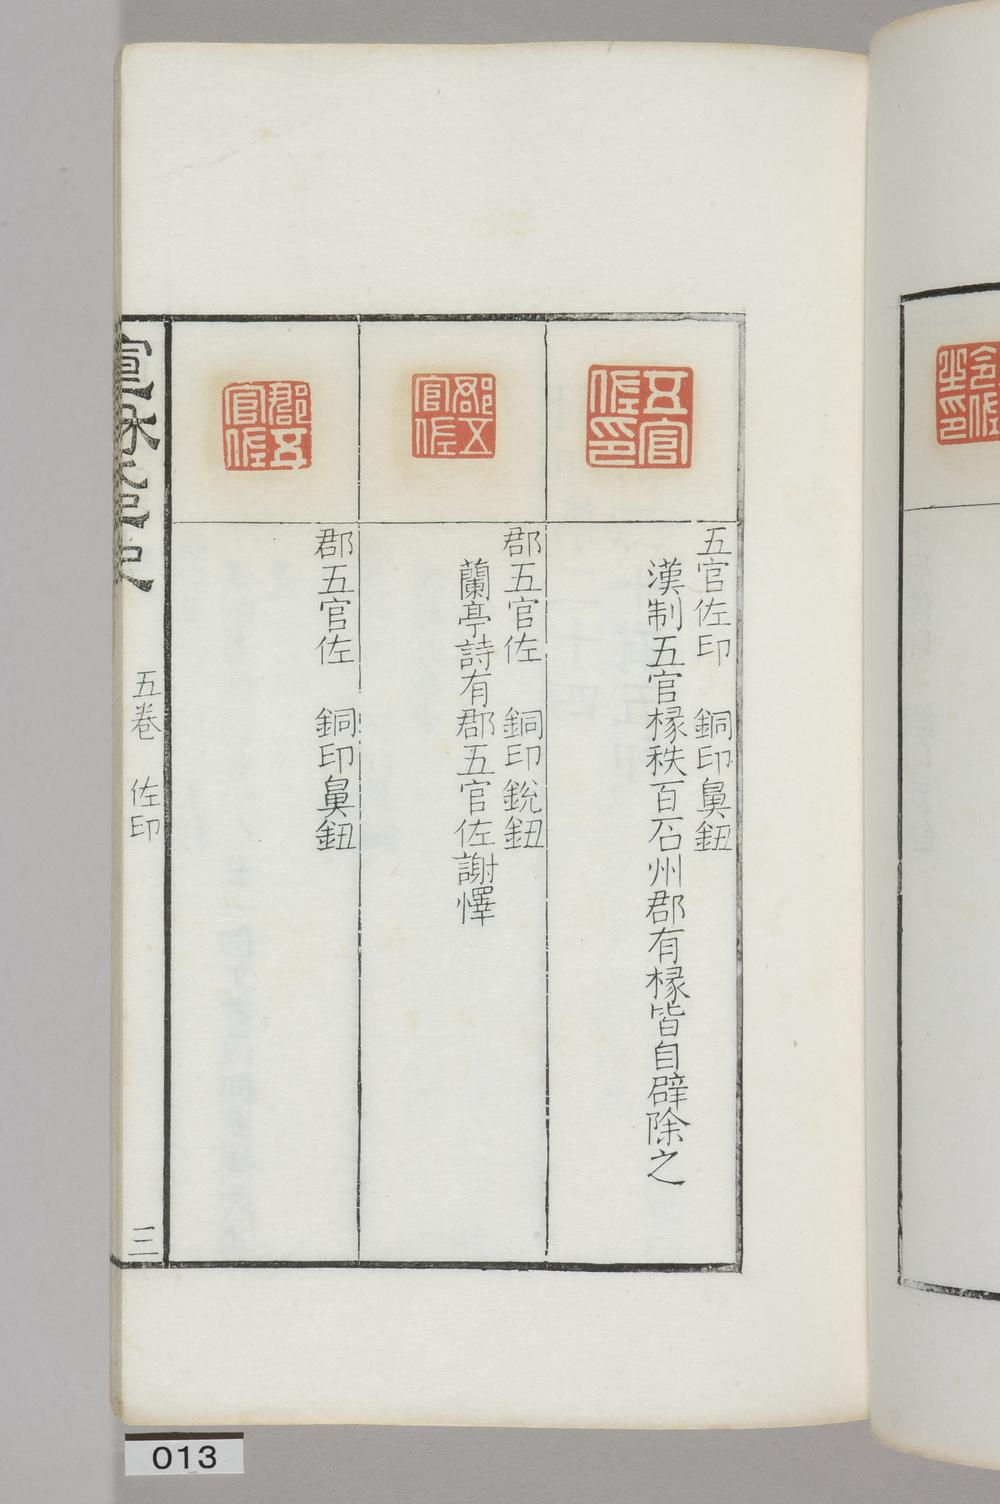 五官佐印
五官佐印　銅印鼻鈕
漢制五官椽秩百石州郡有椽皆自辟除之
郡五官佐
郡五官佐　銅印鋭鈕
蘭亭詩有郡五官佐謝懌
郡五官佐
郡五官佐　銅印鼻鈕
宣和集古印史
五卷　佐印
三
013